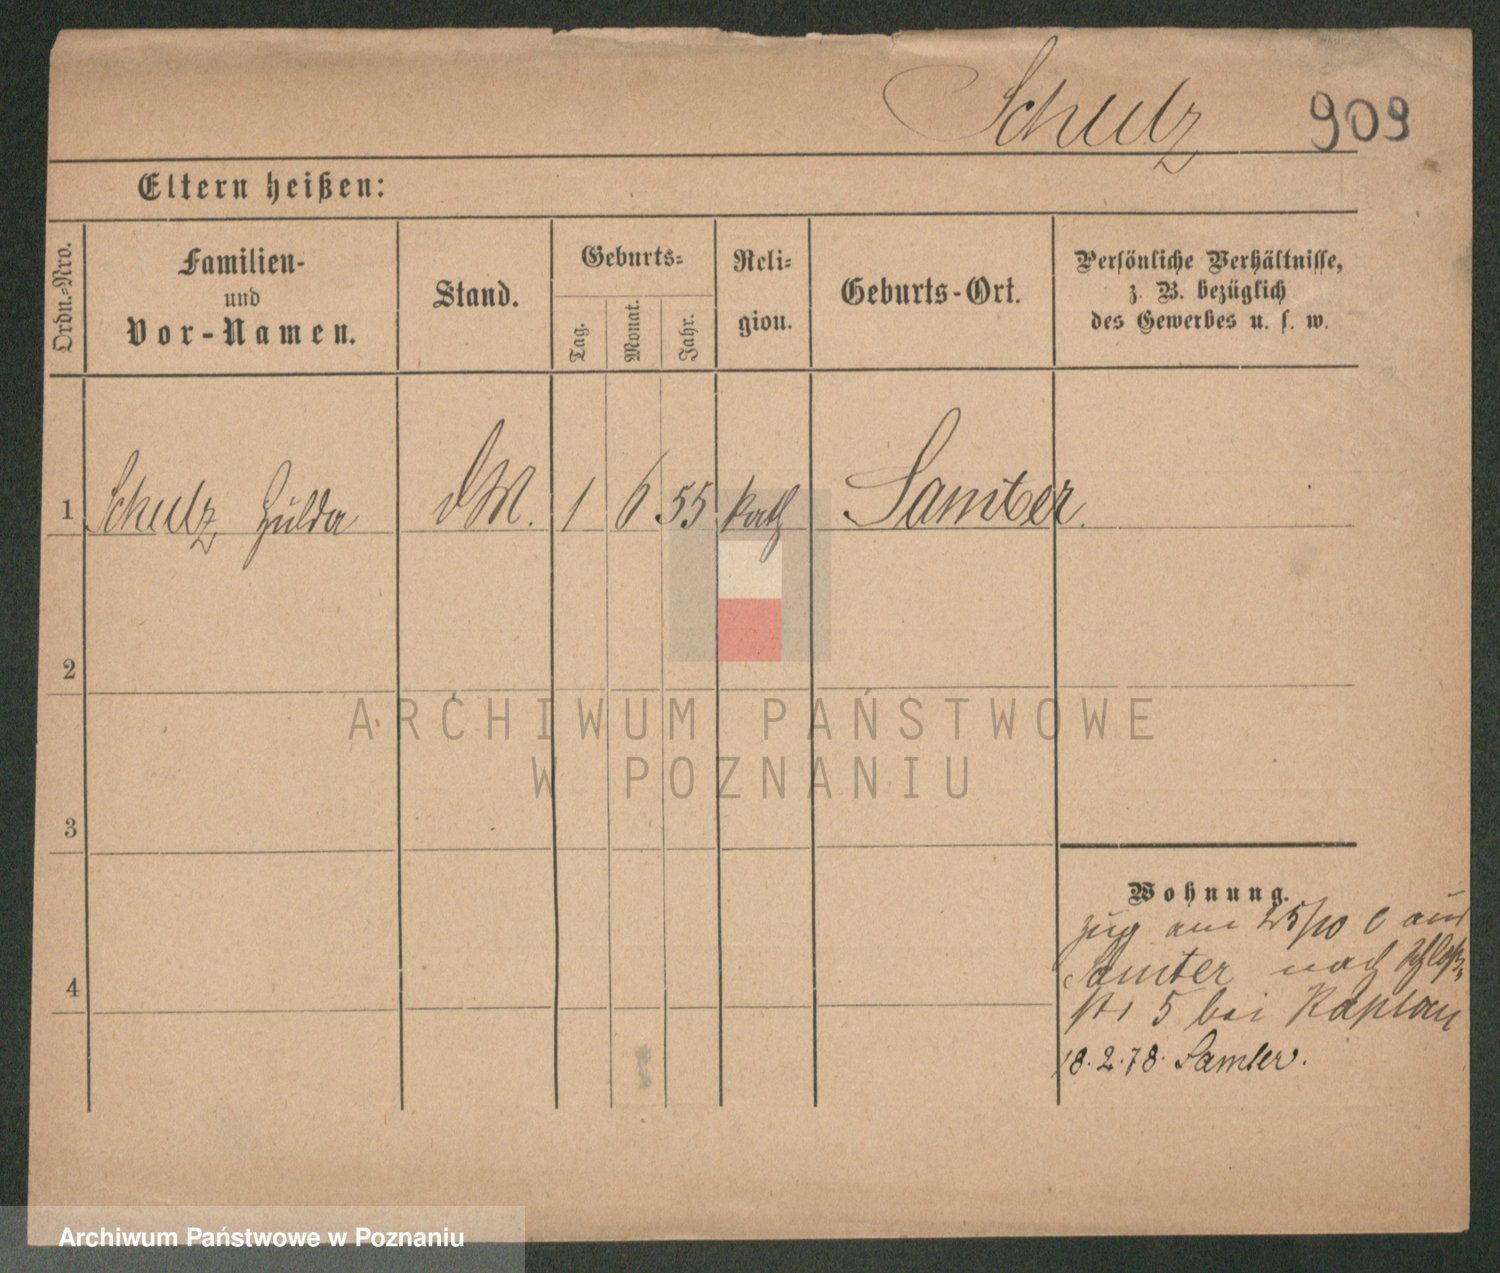 Schulz 909
Eltern heißen:
Ordn.-Nro.
Familien-
und
Vor-Namen.
Stand.
Geburts-
Tag.
Monat.
Jahr.
Reli-
gion.
Geburts-Ort.
Persönliche Verhältnisse,
z. B. bezüglich
des Gewerbes u. s. w.
1 Schulz Hulda DM. 1 6 55 kath Samter.
2
3
4
Wohnung.
zug am 25/10 c aus
Samter nach Schloß-
str 5 bei Kaplan
18.2.78. Samter.
ARCHIWUM PAŃSTWOWE
W POZNANIU
Archiwum Państwowe w Poznaniu